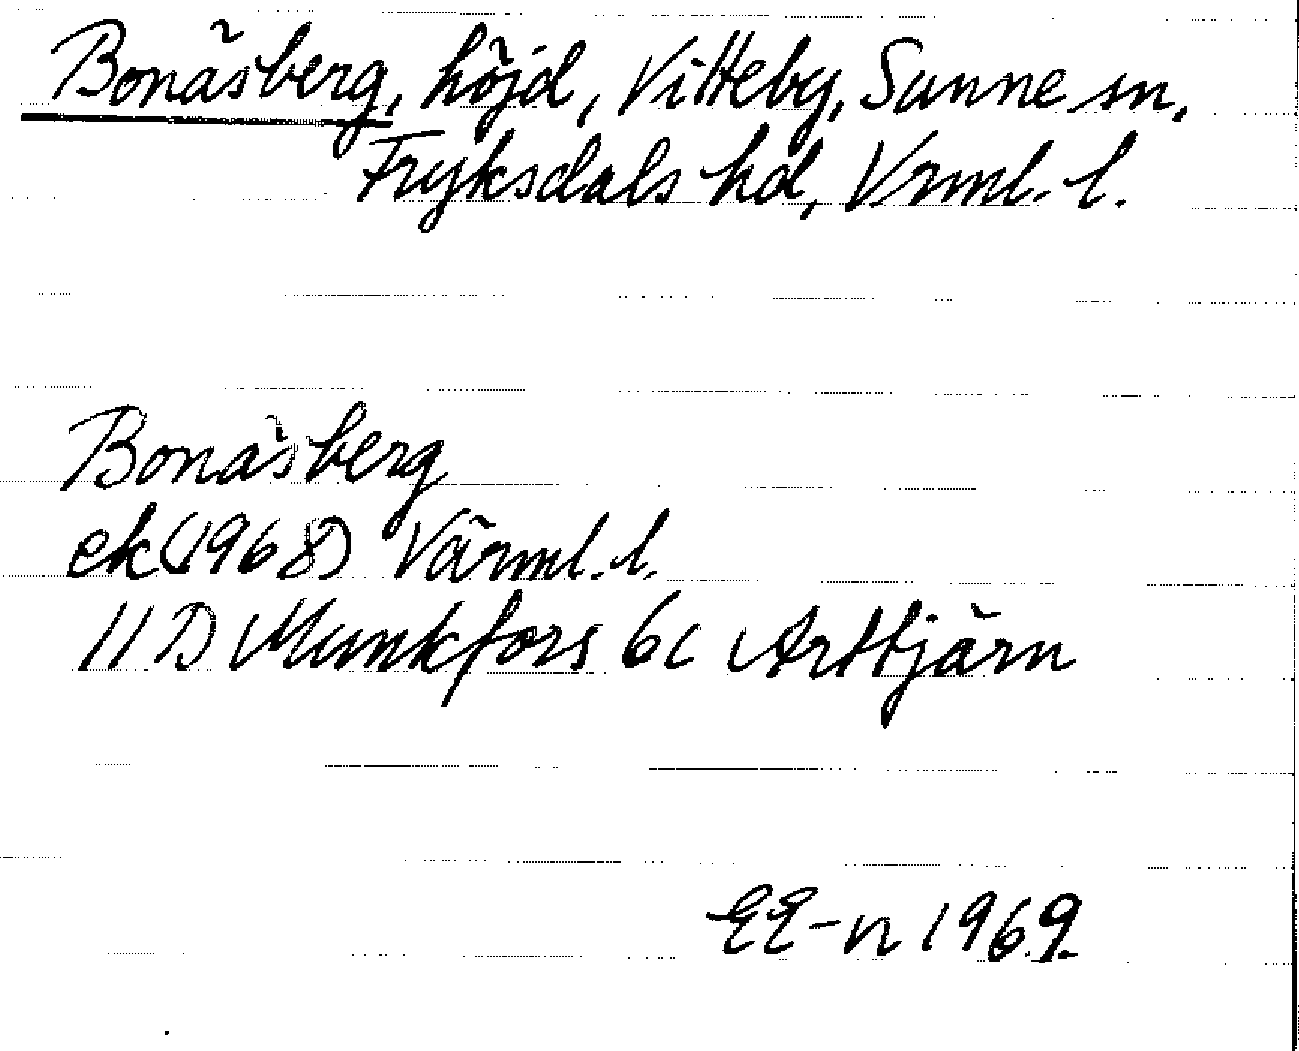 Bonäsberg, höjd, Vitteby, Sunne sn,
Fryksdals hd, Vrml. l.
Bonäsberg
ek (1968) Värml. l.
11 D Munkfors 6c Arttjärn
EE-n 1969.